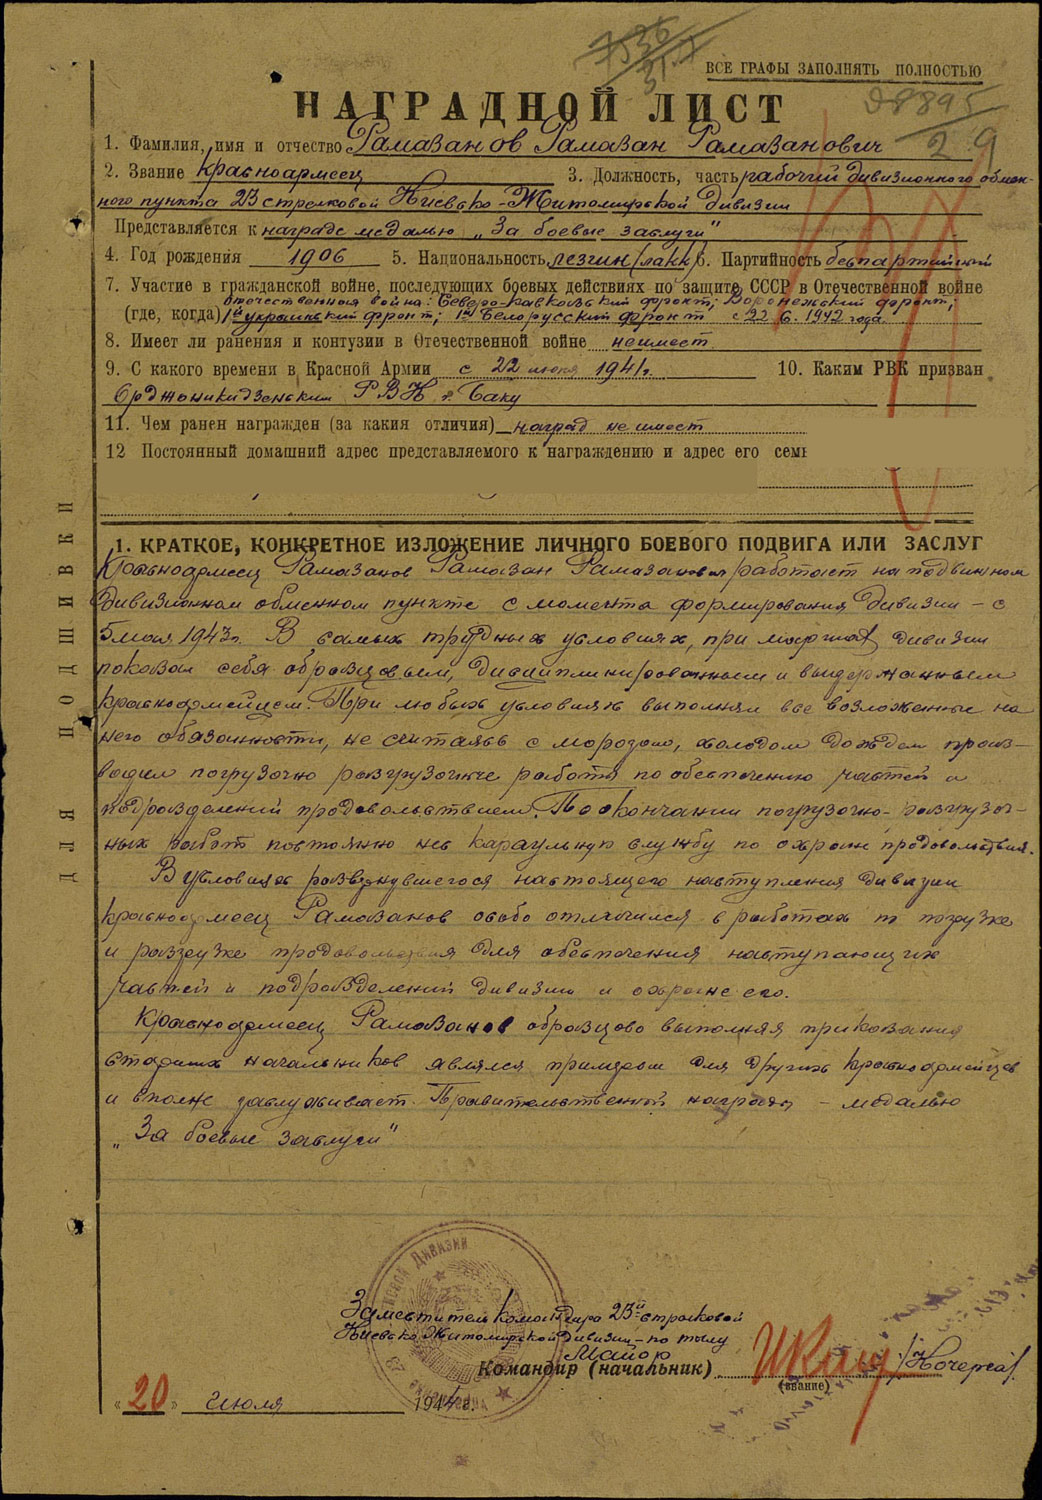 7536
31.7
ВСЕ ГРАФЫ ЗАПОЛНЯТЬ ПОЛНОСТЬЮ
НАГРАДНОЙ ЛИСТ
29
1. Фамилия, имя и отчество Рамазанов Рамазан Рамазанович
2. Звание красноармеец 3. Должность, часть рабочий дивизионного обмен-
ного пункта 23 стрелковой Киевско-Житомирской дивизии
Представляется к награде медалью „За боевые заслуги"
4. Год рождения 1906 5. Национальность лезгин (лакк) 6. Партийность беспартийный
7. Участие в гражданской войне, последующих боевых действиях по защите СССР в Отечественной войне
отечественная война: Северо-Кавказский фронт; Воронежский фронт;
(где, когда) 1й украинский фронт; 1й Белорусский фронт с 22 6. 1942 года.
8. Имеет ли ранения и контузии в Отечественной войне неимеет
9. С какого времени в Красной Армии с 22 июня 1941г. 10. Каким РВК призван
Орджоникидзенским РВК г. Баку
11. Чем ранен награжден (за какия отличия) наград не имеет
12 Постоянный домашний адрес представляемого к награждению и адрес его семь
ДЛЯ ПОДШИВКИ
1. КРАТКОЕ, КОНКРЕТНОЕ ИЗЛОЖЕНИЕ ЛИЧНОГО БОЕВОГО ПОДВИГА ИЛИ ЗАСЛУГ
Красноармеец Рамазанов Рамазан Рамазанович работает на подвижном
дивизионном обменном пункте с момента формирования дивизии – с
5 мая 1943г. В самых трудных условиях, при маршах дивизии
показал себя образцовым, дисциплинированным и выдержанным
красноармейцем. При любых условиях выполнял все возложенные на
него обязанности, не считаясь с морозом, холодом дождем произ-
водил погрузочно разгрузочные работы по обеспечению частей и
подразделений продовольствием. По окончании погрузочно-разгрузоч-
ных работ постоянно нес караульную службу по охране продовольствия.
В условиях развернувшегося настоящего наступления дивизии
красноармеец Рамазанов особо отличился в работах по погрузке
и разгрузке продовольствия для обеспечения наступающих
частей и подразделений дивизии и охране его.
Красноармеец Рамазанов образцово выполняя приказания
старших начальников являлся примером для других красноармейцев
и вполне заслуживает Правительственной награды – медалью
„За боевые заслуги"
Заместитель командира 23й стрелковой
Киевско Житомирской дивизии – по тылу
Майор
Командир (начальник) /Кочерга/.
(звание)
„20" июля 1944 г.